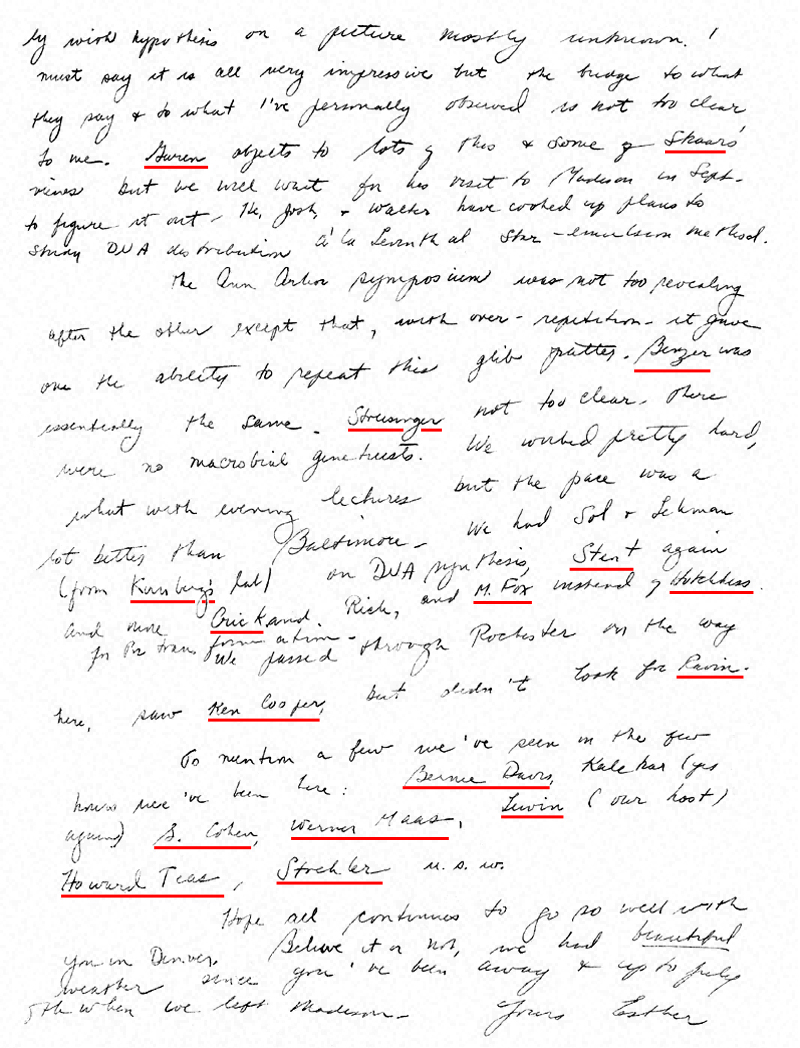 ly with hypothesis on a picture mostly unknown. I
must say it is all very impressive but the bridge to what
they say & to what I've personally observed is not too clear
to me. Garen objects to lots of this & some of Skaars'
views but we will wait for his visit to Madison in Sept.
to figure it out - He, Josh, & Walter have cooked up plans to
study DNA distribution a'la Levinthal star-emulsion method.
The Ann Arbor symposium was not too revealing
after the other except that, with over-repetition - it gave
one the ability to repeat this glib patter. Benzer was
essentially the same. Streisinger not too clear. There
were no macrobial geneticists. We worked pretty hard,
what with evening lectures but the pace was a
lot better than Baltimore - We had Sol & Lehman
(from Kornberg's lab) on DNA synthesis, Stent again
and more Crick and Rich, and M. Fox instead of Hotchkiss.
for Pn transformation -
We passed through Rochester on the way
here, saw Ken Cooper, but didn't look for Ravin.
To mention a few we've seen in the few
hours we've been here: Bernie Davis, Kalckar (yes
again) S. Cohen, Werner Maas, Levin (our host)
Howard Teas, Strehler u.s.w.
Hope all continues to go so well with
you in Denver. Believe it or not, we had beautiful
weather since you've been away & up to July
5th when we left Madison -
Yours Esther